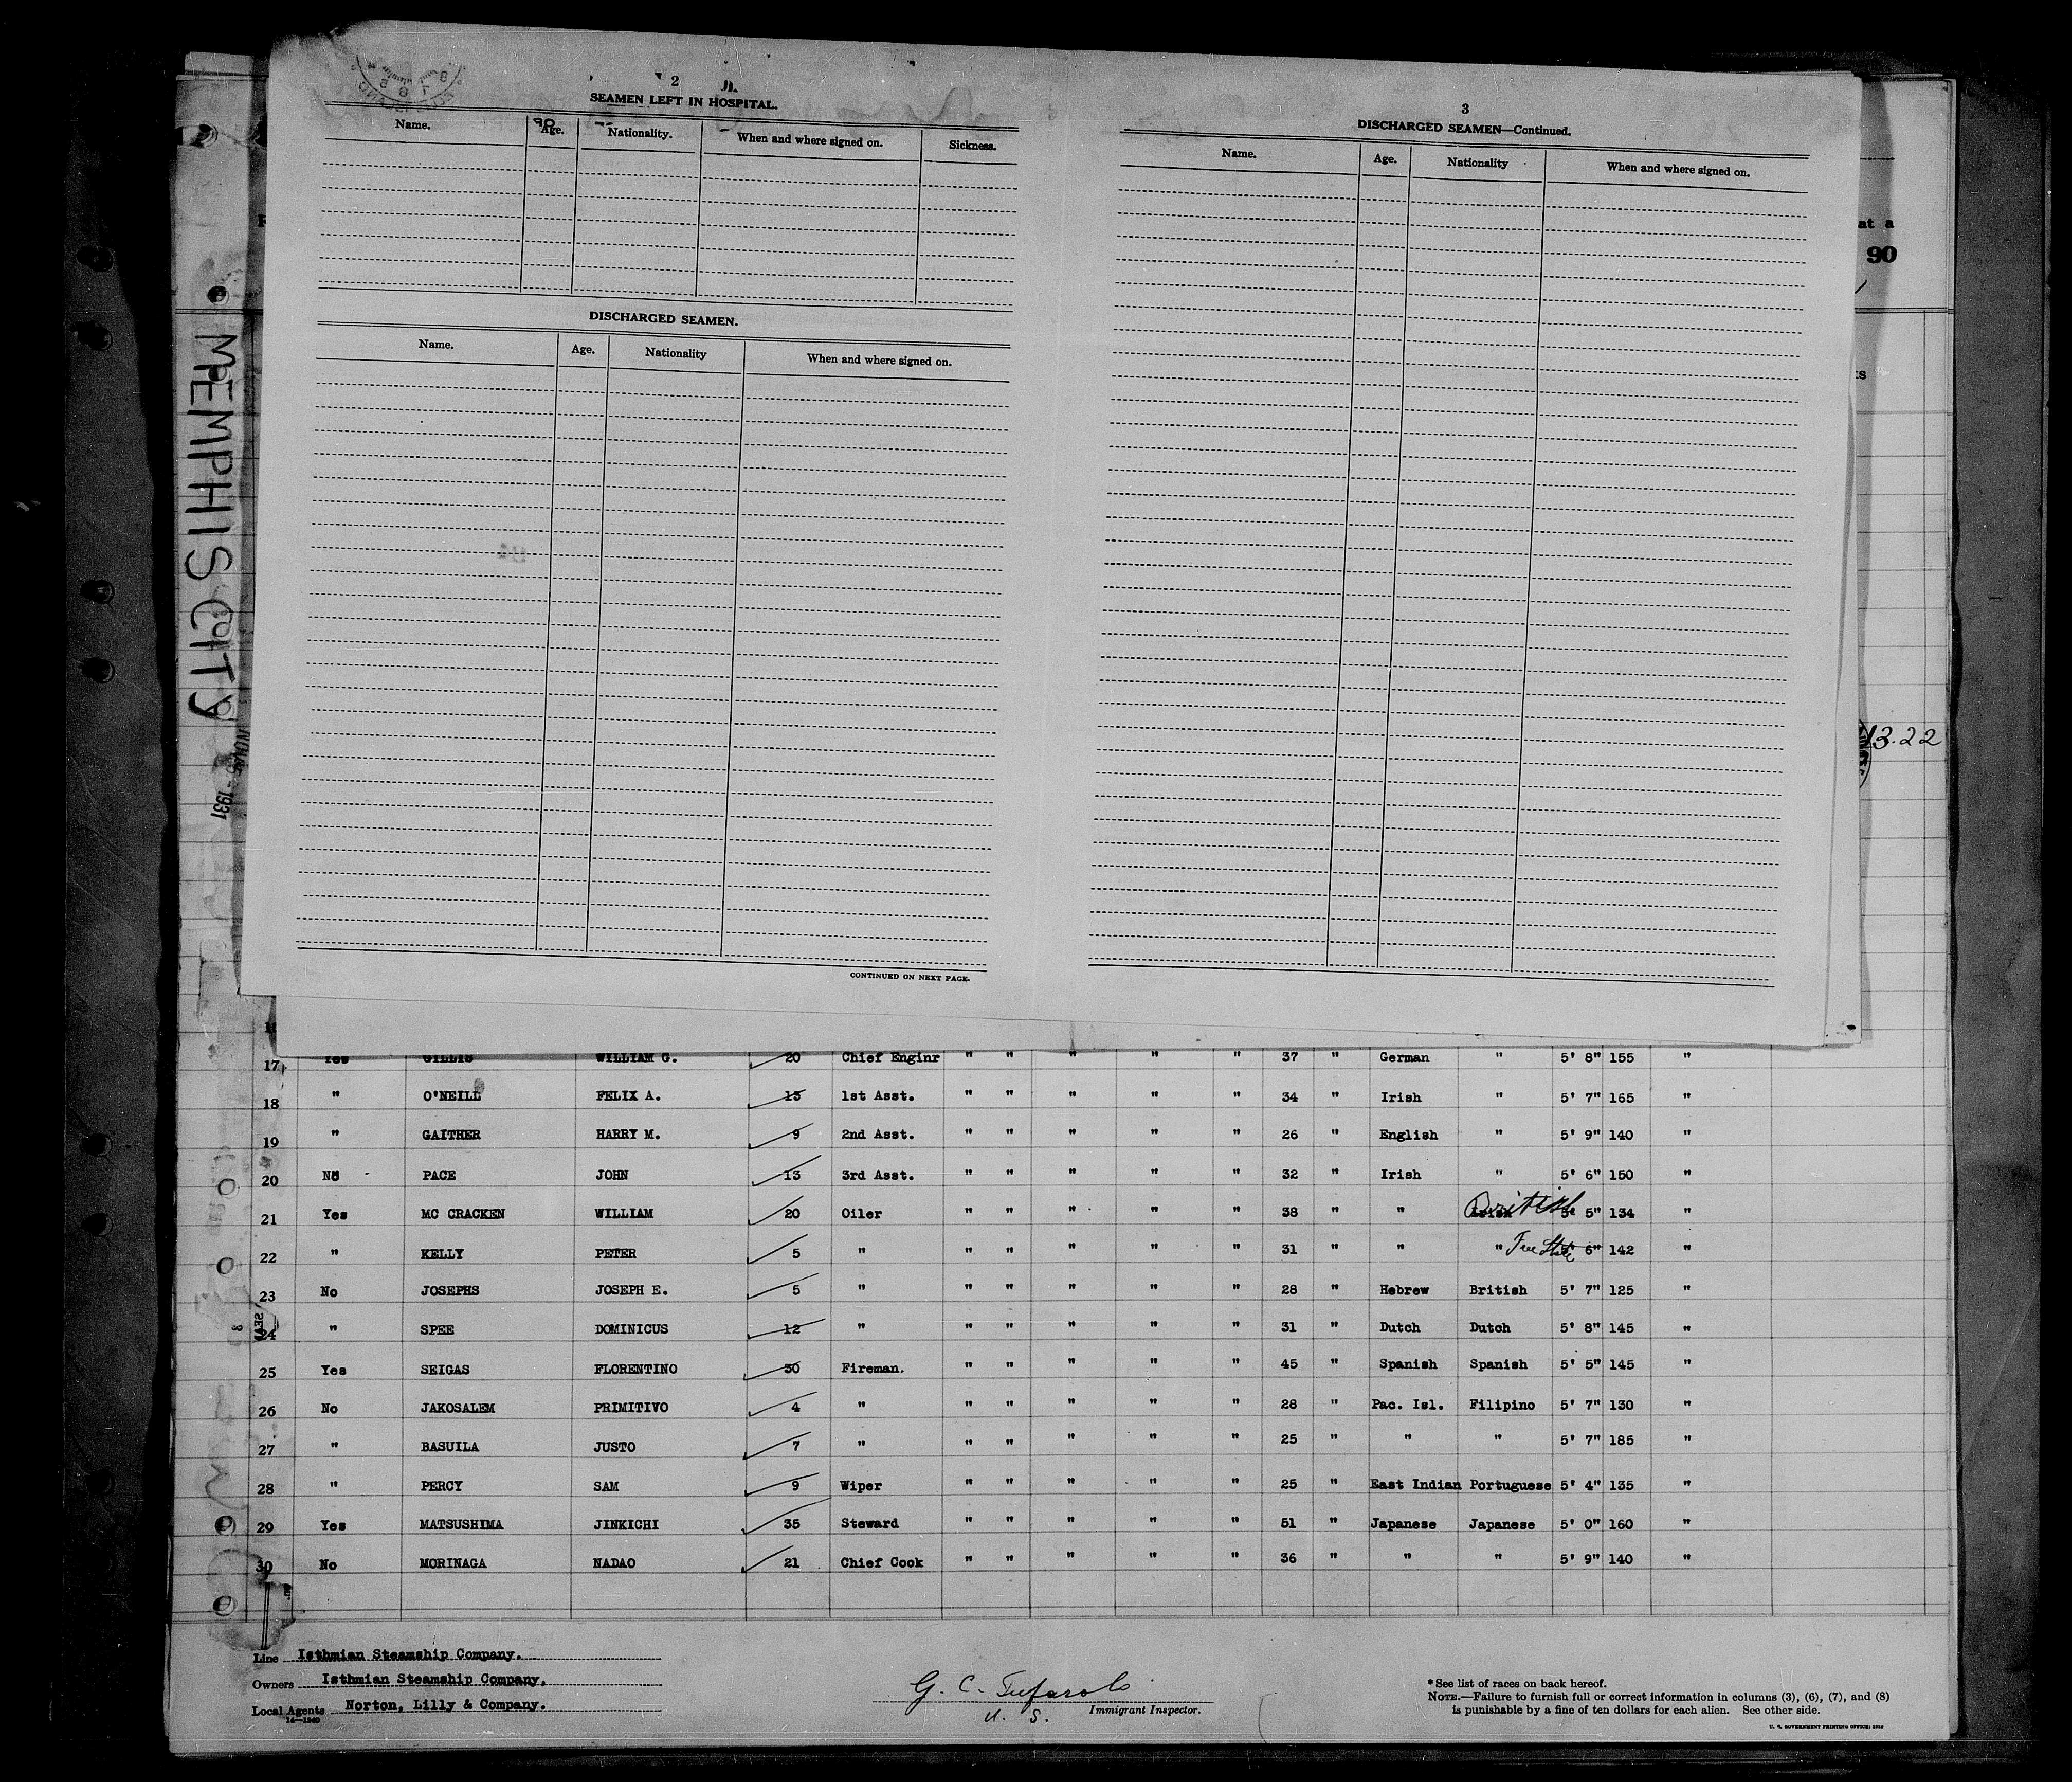 2
SEAMEN LEFT IN HOSPITAL.
Name. Age. Nationality. When and where signed on. Sickness.
DISCHARGED SEAMEN.
Name. Age. Nationality When and where signed on.
CONTINUED ON NEXT PAGE.
3
DISCHARGED SEAMEN—Continued.
Name. Age. Nationality When and where signed on.
at a
90
ts
13.22
MEMPHIS CITY
1931
17 Yes GILLIS WILLIAM G. 20 Chief Enginr " " " " " 37 " German " 5' 8" 155 "
18 " O'NEILL FELIX A. 13 1st Asst. " " " " " 34 " Irish " 5' 7" 165 "
19 " GAITHER HARRY M. 9 2nd Asst. " " " " " 26 " English " 5' 9" 140 "
20 No PACE JOHN 13 3rd Asst. " " " " " 32 " Irish " 5' 6" 150 "
21 Yes MC CRACKEN WILLIAM 20 Oiler " " " " " 38 " " British 5' 5" 134 "
22 " KELLY PETER 5 " " " " " " 31 " " " Free State 5' 6" 142 "
23 No JOSEPHS JOSEPH E. 5 " " " " " " 28 " Hebrew British 5' 7" 125 "
24 " SPEE DOMINICUS 12 " " " " " " 31 " Dutch Dutch 5' 8" 145 "
25 Yes SEIGAS FLORENTINO 30 Fireman. " " " " " 45 " Spanish Spanish 5' 5" 145 "
26 No JAKOSALEM PRIMITIVO 4 " " " " " " 28 " Pac. Isl. Filipino 5' 7" 130 "
27 " BASUILA JUSTO 7 " " " " " " 25 " " " 5' 7" 185 "
28 " PERCY SAM 9 Wiper " " " " " 25 " East Indian Portuguese 5' 4" 135 "
29 Yes MATSUSHIMA JINKICHI 35 Steward " " " " " 51 " Japanese Japanese 5' 0" 160 "
30 No MORINAGA NADAO 21 Chief Cook " " " " " 36 " " " 5' 9" 140 "
Line Isthmian Steamship Company.
Owners Isthmian Steamship Company,
Local Agents Norton, Lilly & Company.
14—1240
G. C.
U. S. Immigrant Inspector.
* See list of races on back hereof.
NOTE.—Failure to furnish full or correct information in columns (3), (6), (7), and (8)
is punishable by a fine of ten dollars for each alien. See other side.
U. S. GOVERNMENT PRINTING OFFICE: 1930